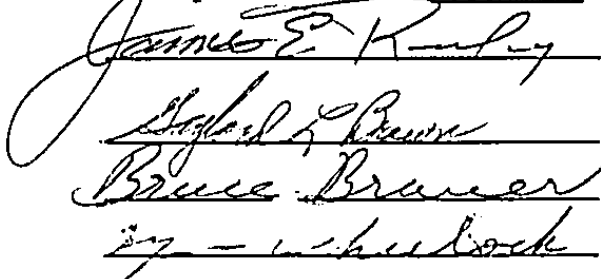 James E
Gaylord L Brown
Bruce Brawer
Wheelock